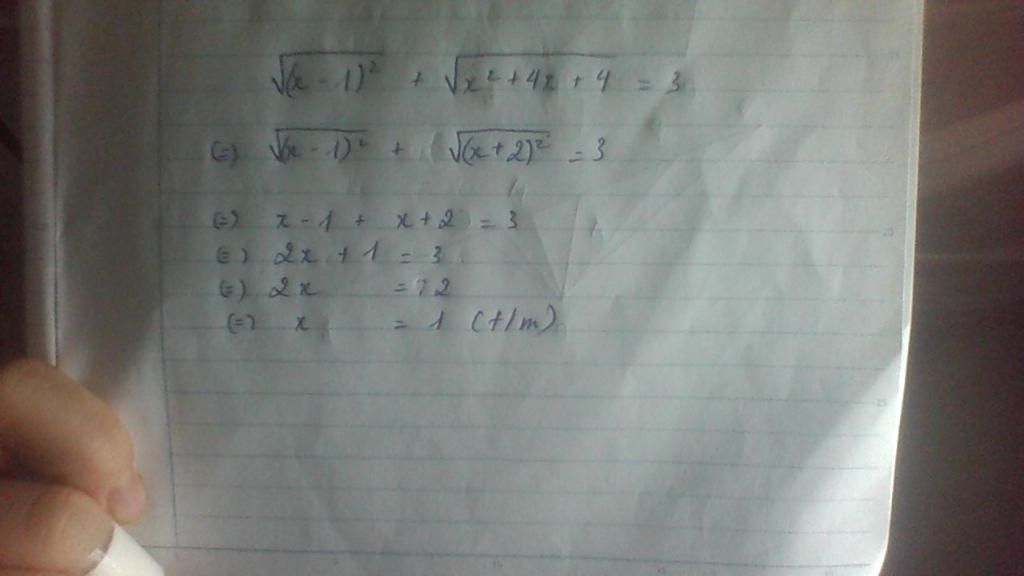 √(x - 1)² + √x² + 4x + 4 = 3
(=) √(x - 1)² + √(x + 2)² = 3
(=) x - 1 + x + 2 = 3
(=) 2x + 1 = 3
(=) 2x = 2
(=) x = 1 (t/m)